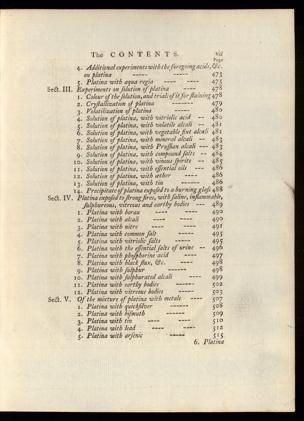 The CONTENTS. vii
Page
4. Additional experiments with the foregoing acids, &c. on platina ---- ---- 473
5. Platina with aqua regia ---- ---- 475
Sect. III. Experiments on solution of platina ---- 478
1. Colour of the solution, and trials of it for staining 478
2. Crystallization of platina ---- 479
3. Volatilization of platina ---- 480
4. Solution of platina, with vitriolic acid -- 480
5. Solution of platina, with volatile alcali -- 481
6. Solution of platina, with vegetable fixt alcali 481
7. Solution of platina, with mineral alcali -- 483
8. Solution of platina, with Prussian alcali --- 483
9. Solution of platina, with compound salts -- 484
10. Solution of platina, with vinous spirits -- 485
11. Solution of platina, with essential oils --- 486
12. Solution of platina, with aether ---- 486
13. Solution of platina, with tin ---- 486
14. Precipitate of platina exposed to a burning glass 488
Sect. IV. Platina exposed to strong fires, with saline, inflammable, sulphureous, vitreous and earthy bodies --- 489
1. Platina with borax ---- ---- 490
2. Platina with alcali ---- ---- 490
3. Platina with nitre ---- ---- 491
4. Platina with common salt ---- 495
5. Platina with vitriolic salts ---- 495
6. Platina with the essential salts of urine -- 496
7. Platina with phosphorine acid ---- 497
8. Platina with black flux, &c. ---- 498
9. Platina with sulphur ---- 498
10. Platina with sulphurated alcali ---- 499
11. Platina with earthy bodies ---- 502
12. Platina with vitreous bodies ---- 503
Sect. V. Of the mixture of platina with metals ---- 507
1. Platina with quicksilver ---- 508
2. Platina with bismuth ---- 509
3. Platina with tin ---- ---- 510
4. Platina with lead ---- ---- 512
5. Platina with arsenic ---- 515
6. Platina